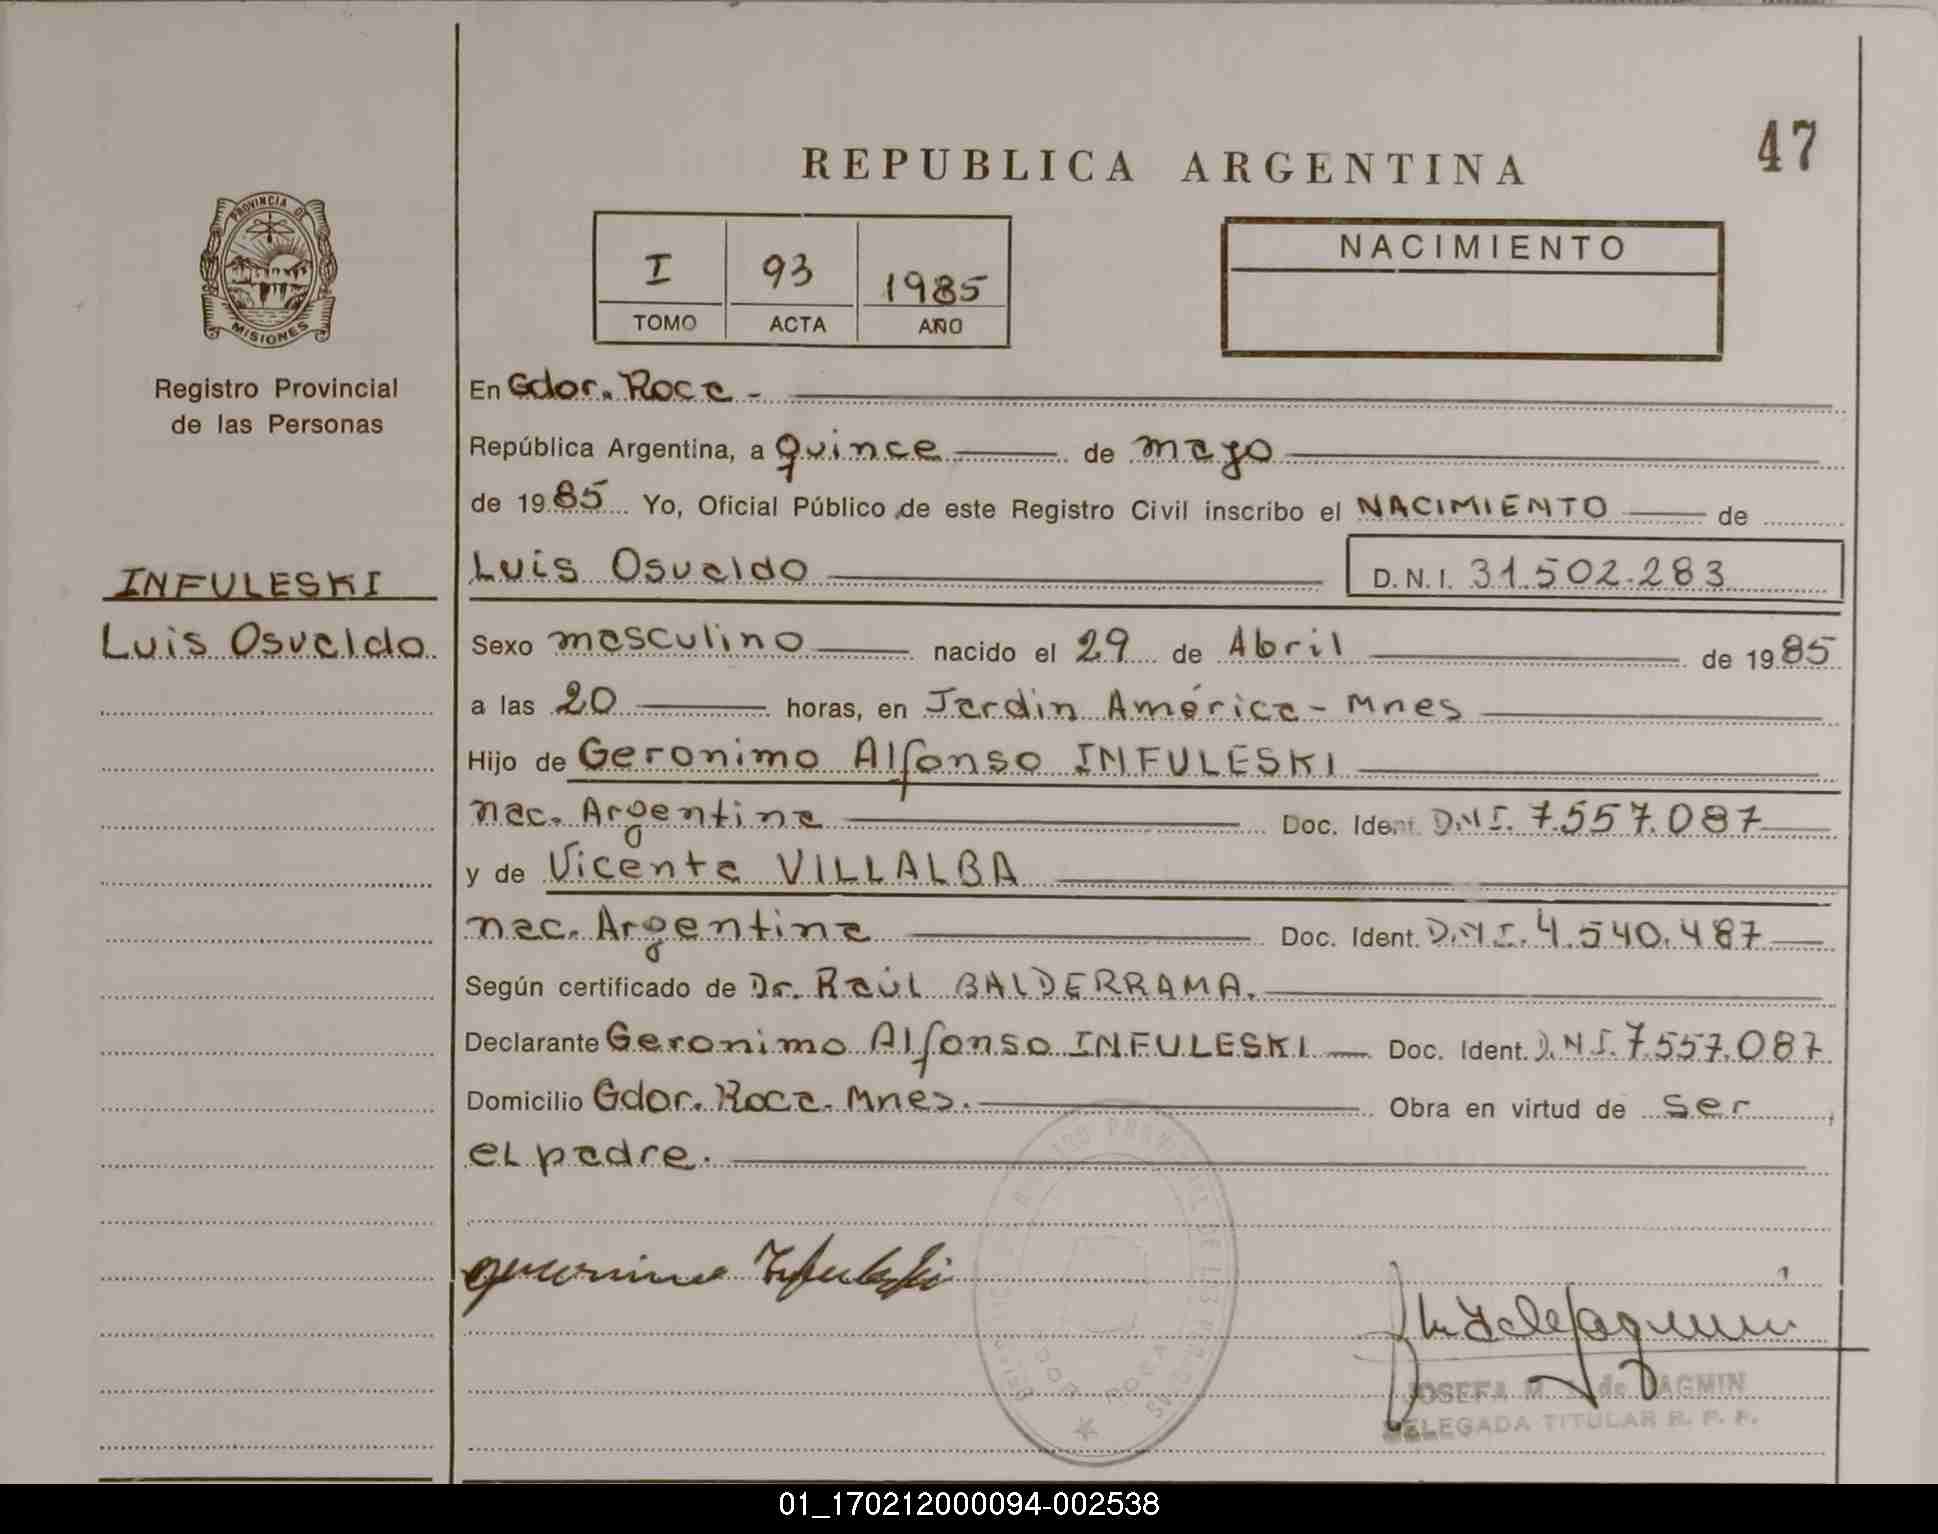 47
REPUBLICA ARGENTINA
PROVINCIA DE
MISIONES
Registro Provincial
de las Personas
I 93 1985
TOMO ACTA AÑO
NACIMIENTO
En Gdor. Roca -
República Argentina, a quince de mayo
de 1985 Yo, Oficial Público de este Registro Civil inscribo el NACIMIENTO de
INFULESKI
Luis Osvaldo
Luis Osvaldo D.N.I. 31.502.283
Sexo masculino nacido el 29 de Abril de 1985
a las 20 horas, en Jardin América - Mnes
Hijo de Geronimo Alfonso INFULESKI
nac. Argentina Doc. Ident. D.N.I. 7.557.087
y de Vicenta VILLALBA
nac. Argentina Doc. Ident. D.N.I. 4.540.487
Según certificado de Dr. Raúl BALDERRAMA.
Declarante Geronimo Alfonso INFULESKI Doc. Ident. D.N.I. 7.557.087
Domicilio Gdor. Roca. Mnes. Obra en virtud de ser
el padre.
JOSEFA M de JAGMIN
DELEGADA TITULAR R. P. P.
01_170212000094-002538